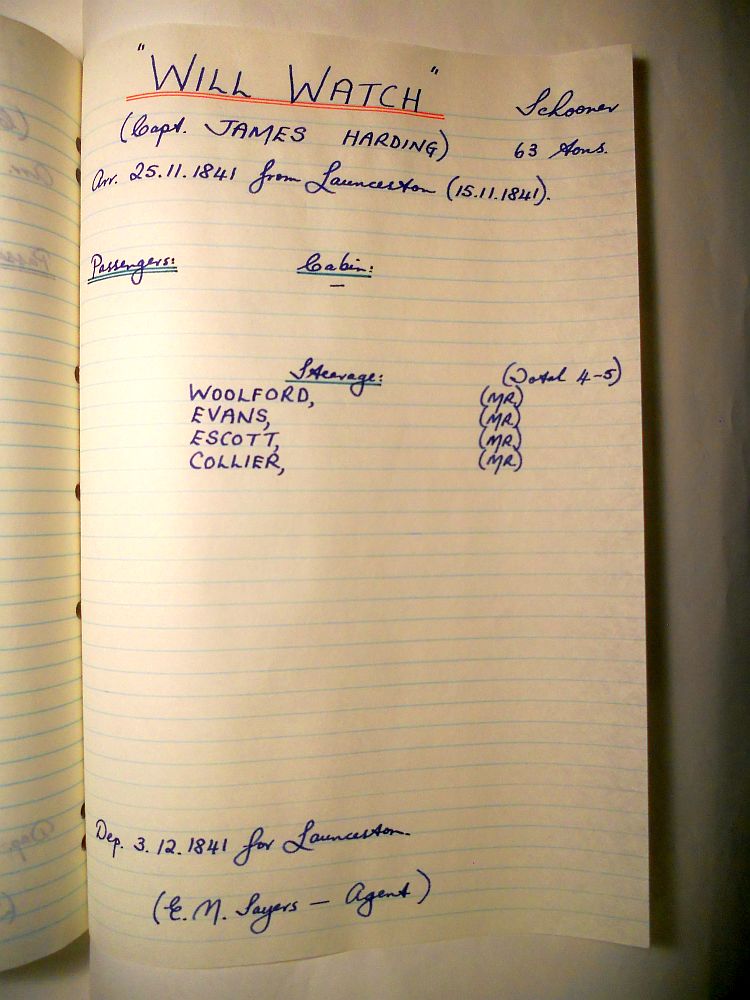 "WILL WATCH"
Schooner
(Capt. JAMES HARDING)
63 tons.
Arr. 25.11.1841 from Launceston (15.11.1841).
Passengers:
Cabin:
—
Steerage: (Total 4-5)
WOOLFORD, (MR)
EVANS, (MR)
ESCOTT, (MR)
COLLIER, (MR)
Dep. 3.12.1841 for Launceston.
(E. M. Sayers — Agent)